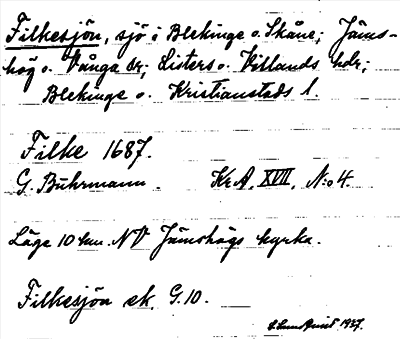 Filkesjön, sjö i Blekinge o. Skåne; Jäms-
hög o. Vånga sr; Listers o. Villands hdr;
Blekinge o. Kristianstads l.
Filke 1687.
G. Buhrmann. KrA, XVII, N:o 4.
Läge 10 km. NV Jämshögs kyrka.
Filkesjön ek. G.10.
1927.